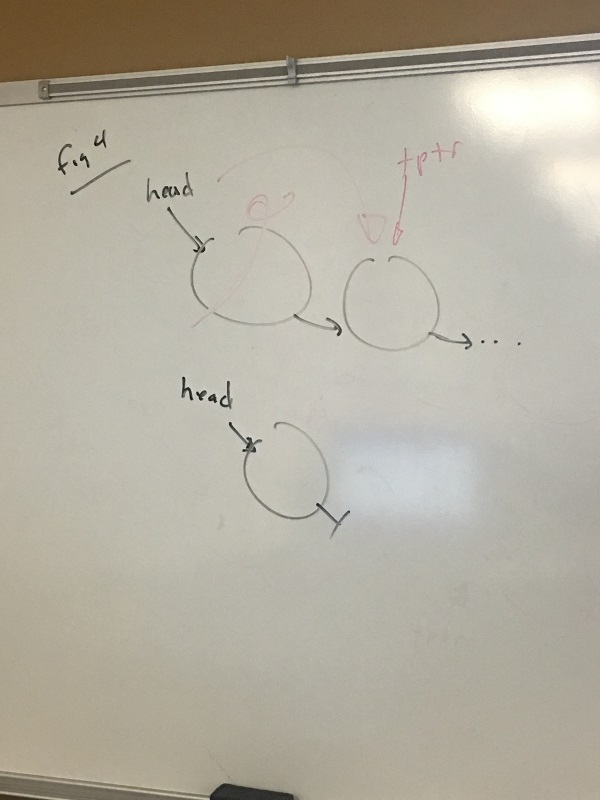 fig 4
head
tptr
...
head